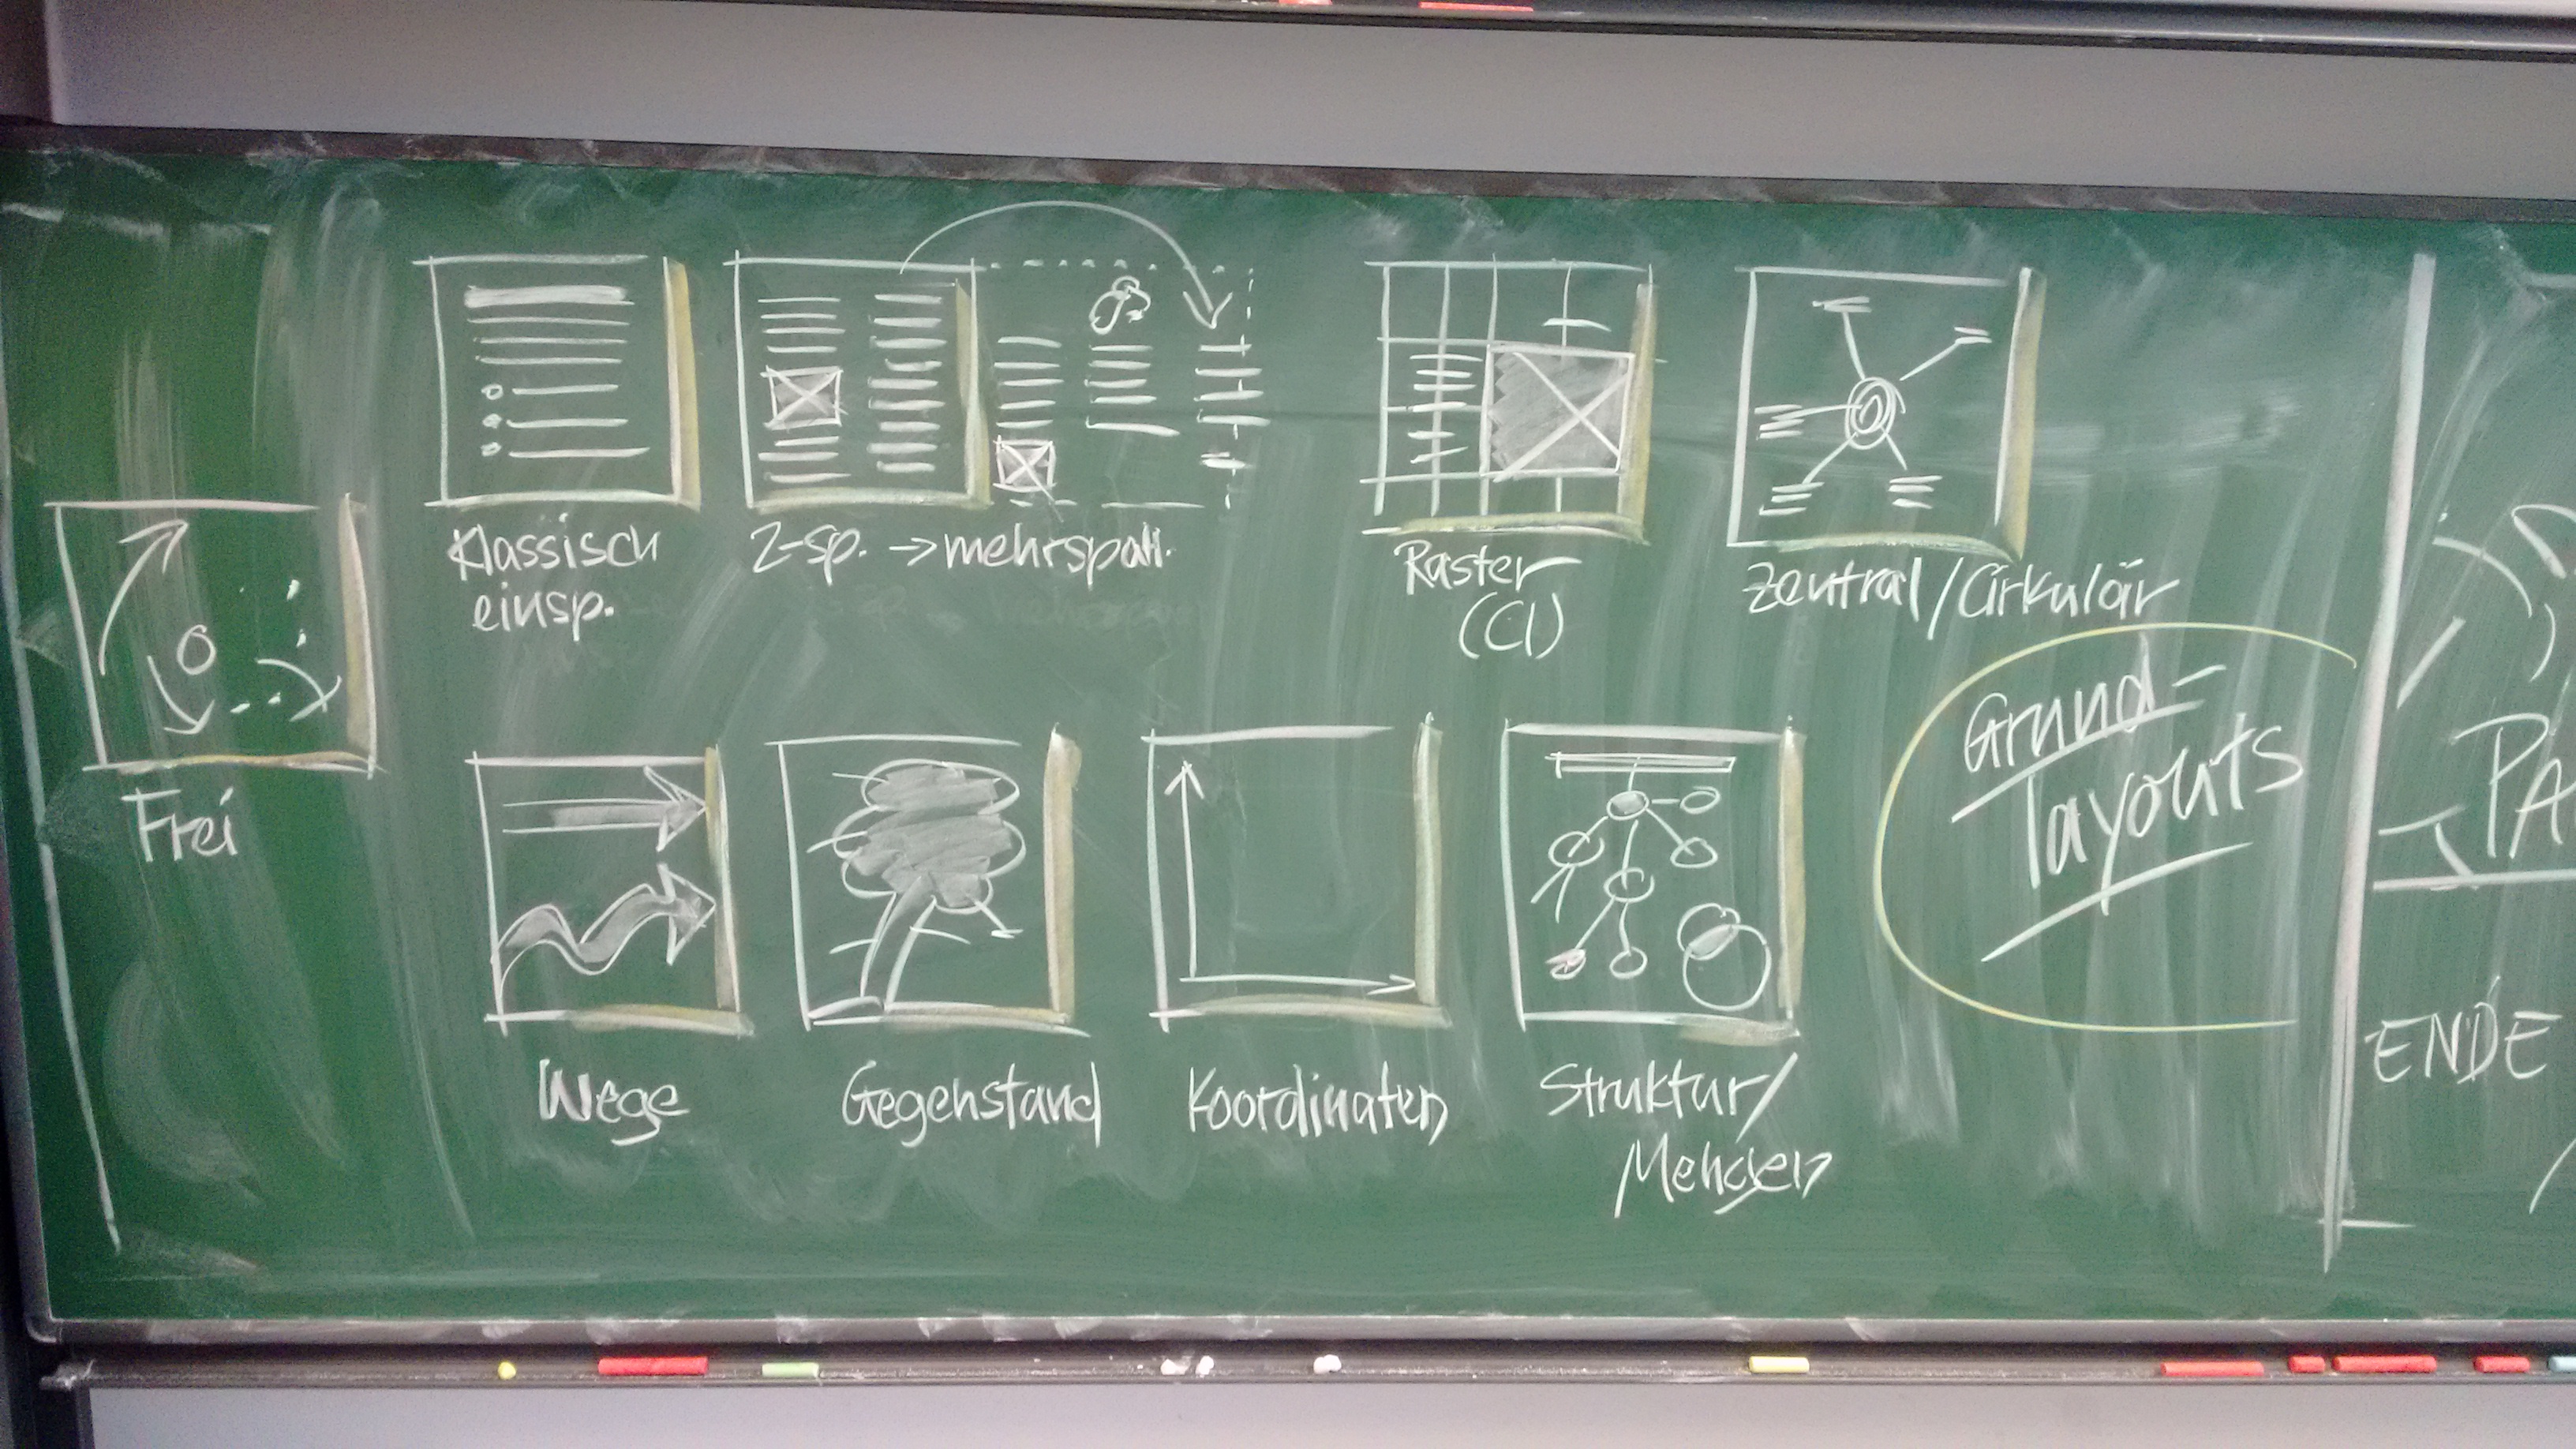 Klassisch
einsp.
2-sp. → mehrspalt.
Raster
(CI)
Zentral/Cirkulär
Frei
Grund-
layouts
Wege
Gegenstand
Koordinaten
Struktur/
Mengen
PA
ENDE